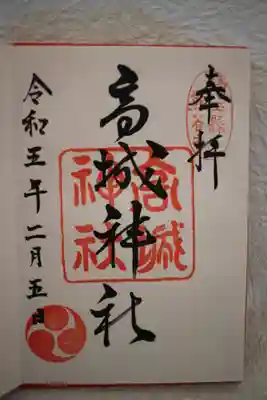 奉拝
高城神社
高城神社
令和五年二月五日